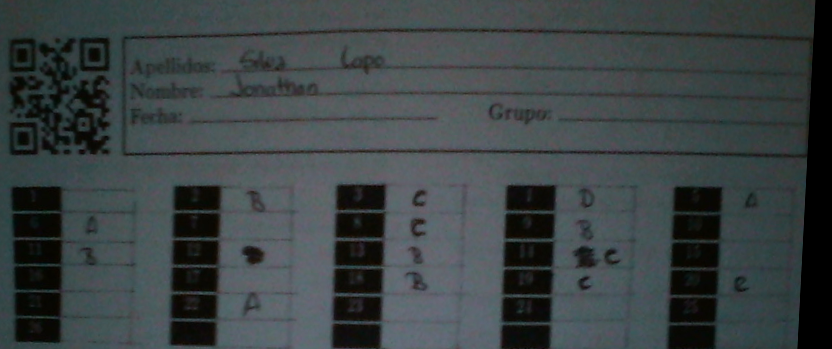 Apellidos: Silva Lapo
Nombre: Jonathan
Fecha: Grupo:
1 2 B 3 C 4 D 5 A
6 A 7 8 C 9 B 10
11 B 12 13 B 14 C 15
16 17 18 B 19 C 20 C
21 22 A 23 24 25
26